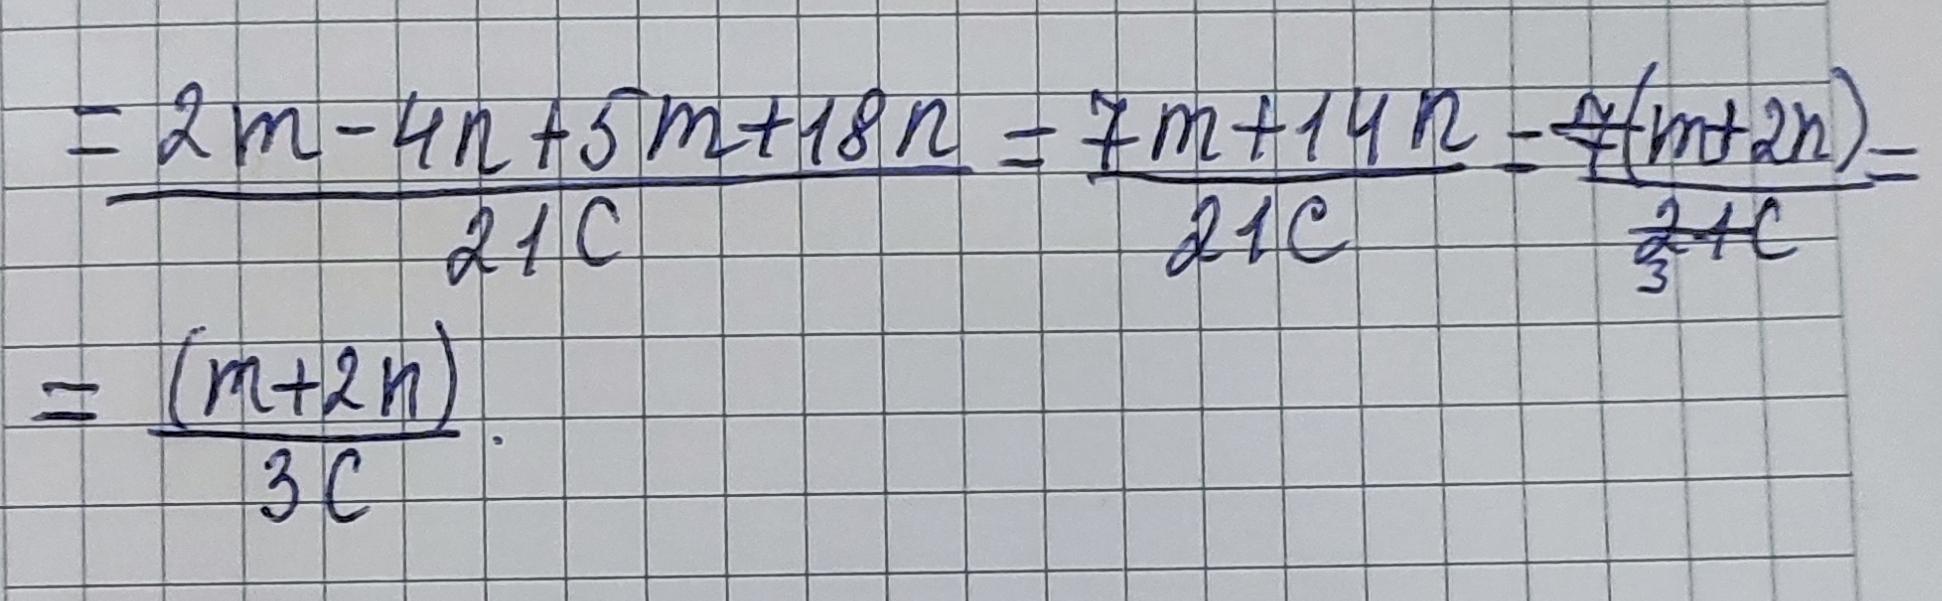 = (2m - 4n + 5m + 18n) / 21C = (7m + 14n) / 21C = 7(m + 2n) / 21C 3 =
= (m + 2n) / 3C .